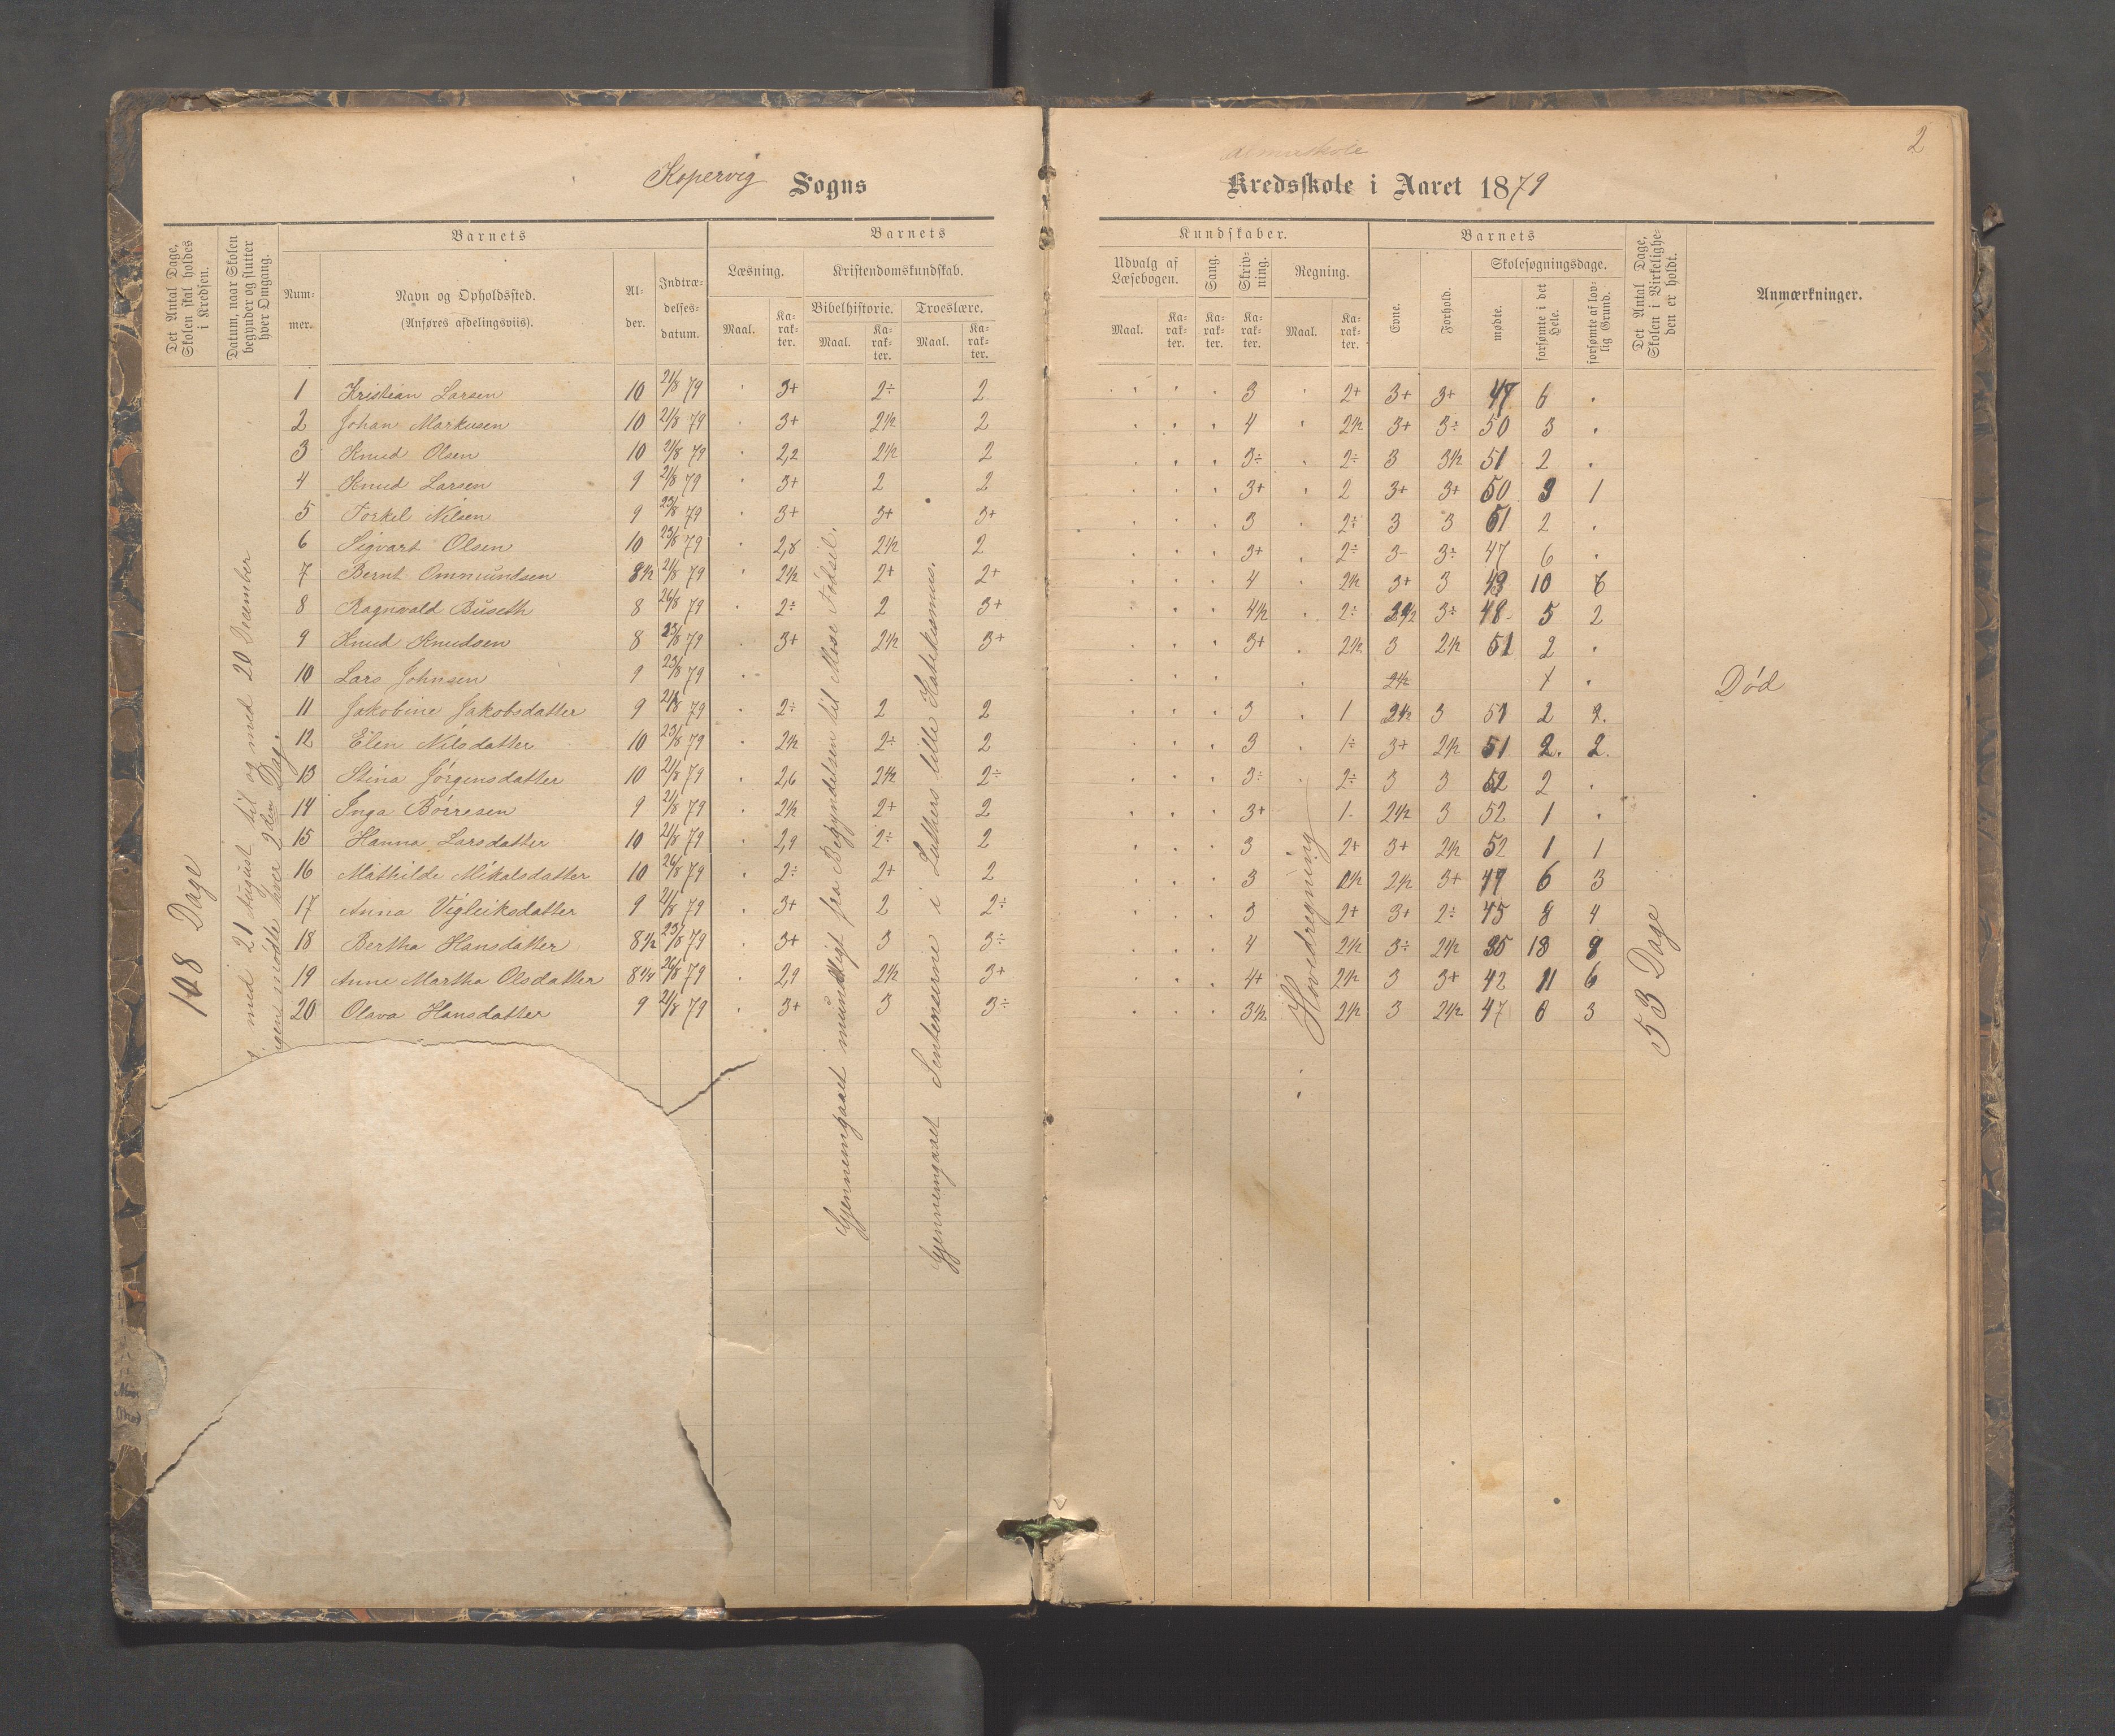 2
Kopervig Sogns
Almuskole
Kredsskole i Aaret 1879
Det Antal Dage, Skolen skal holdes i Kredsen.
Datum, naar Skolen begynder og slutter hver Omgang.
Barnets
Nummer.
Navn og Opholdssted.
(Anføres afdelingsviis).
Alder.
Indtrædelsesdatum.
Barnets
Læsning.
Maal.
Karakter.
Kristendomskundskab.
Bibelhistorie.
Maal.
Karakter.
Troeslære.
Maal.
Karakter.
Kundskaber.
Udvalg af Læsebogen.
Maal.
Karakter.
Sang.
Karakter.
Skrivning.
Karakter.
Regning.
Maal.
Karakter.
Barnets
Evne.
Forhold.
Skolesøgningsdage.
mødte.
forsømte i det Hele.
forsømte af lovlig Grund.
Det Antal Dage, Skolen i Virkeligheden er holdt.
Anmærkninger.
1 Kristian Larsen 10 21/8 79 3+ 2÷ 2 3 2+ 3+ 3+ 47 6
2 Johan Markusen 10 21/8 79 3+ 2½ 2 4 2½ 3+ 3÷ 50 3
3 Knud Olsen 10 21/8 79 2,2 2½ 2 3÷ 2÷ 3 3½ 51 2
4 Knud Larsen 9 21/8 79 3+ 2 2 3+ 2 3+ 3+ 50 3 1
5 Torkel Nilsen 9 23/8 79 3+ 3+ 3+ 3 2÷ 3 3 51 2
6 Sigvart Olsen 10 23/8 79 2,8 2½ 2 3+ 2÷ 3- 3÷ 47 6
7 Bernt Ommundsen 8½ 21/8 79 2½ 2+ 2+ 4 2½ 3+ 3 43 10 6
8 Ragnvald Buseth 8 26/8 79 2÷ 2 3+ 4½ 2÷ 2½ 3÷ 48 5 2
9 Knud Knudsen 8 23/8 79 3+ 2½ 3+ 3+ 2½ 3 2½ 51 2
10 Lars Johnsen 9 23/8 79 2½ Død
11 Jakobine Jakobsdatter 9 21/8 79 2÷ 2 2 3 1 2½ 3 51 2 2.
12 Elen Nilsdatter 10 23/8 79 2½ 2÷ 2 3 1÷ 3+ 2½ 51 2. 2.
13 Stina Jørgensdatter 10 21/8 79 2,6 2½ 2÷ 3÷ 2÷ 3 3 52 2
14 Inga Børresen 9 21/8 79 2½ 2+ 2 3+ 1- 2½ 3 52 1
15 Hanna Larsdatter 10 21/8 79 2,9 2÷ 2 3 2+ 3+ 2½ 52 1 1
16 Mathilde Mikalsdatter 10 26/8 79 2÷ 2+ 2 3 2½ 3+ 47 6 3
17 Anna Vigleiksdatter 9 21/8 79 3+ 2 2÷ 3 2+ 3+ 2÷ 45 8 4
18 Bertha Hansdatter 8½ 23/8 79 3+ 3 3÷ 4 2½ 3÷ 2½ 35 18 9
19 Anne Martha Olsdatter 8¼ 26/8 79 2,9 2½ 3+ 4+ 2½ 3 3+ 42 11 6
20 Olava Hansdatter 9 21/8 79 3+ 3 3÷ 3½ 2½ 3 2½ 47 6 3
108 Dage
med 21 August til og med 20 December
mødte hver 2den Dag.
Gjennemgaaet mundtligt fra Begyndelsen til Mose Fødsel.
Gjennemgaaet Sentenserne i Luthers lille Katekismus.
Hovedregning
53 Dage